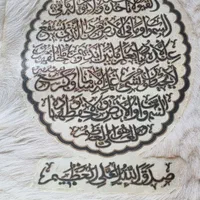 القيوم لا تأخذه سنة ولا نوم له ما في
السموات وما في الارض من ذا الذي يشفع
عنده الا باذنه يعلم ما بين ايديهم وما خلفهم
ولا يحيطون بشيء من علمه الا بما شاء وسع كرسيه
السموات والارض ولا يؤده حفظهما
وهو العلي العظيم
صدق الله العلي العظيم